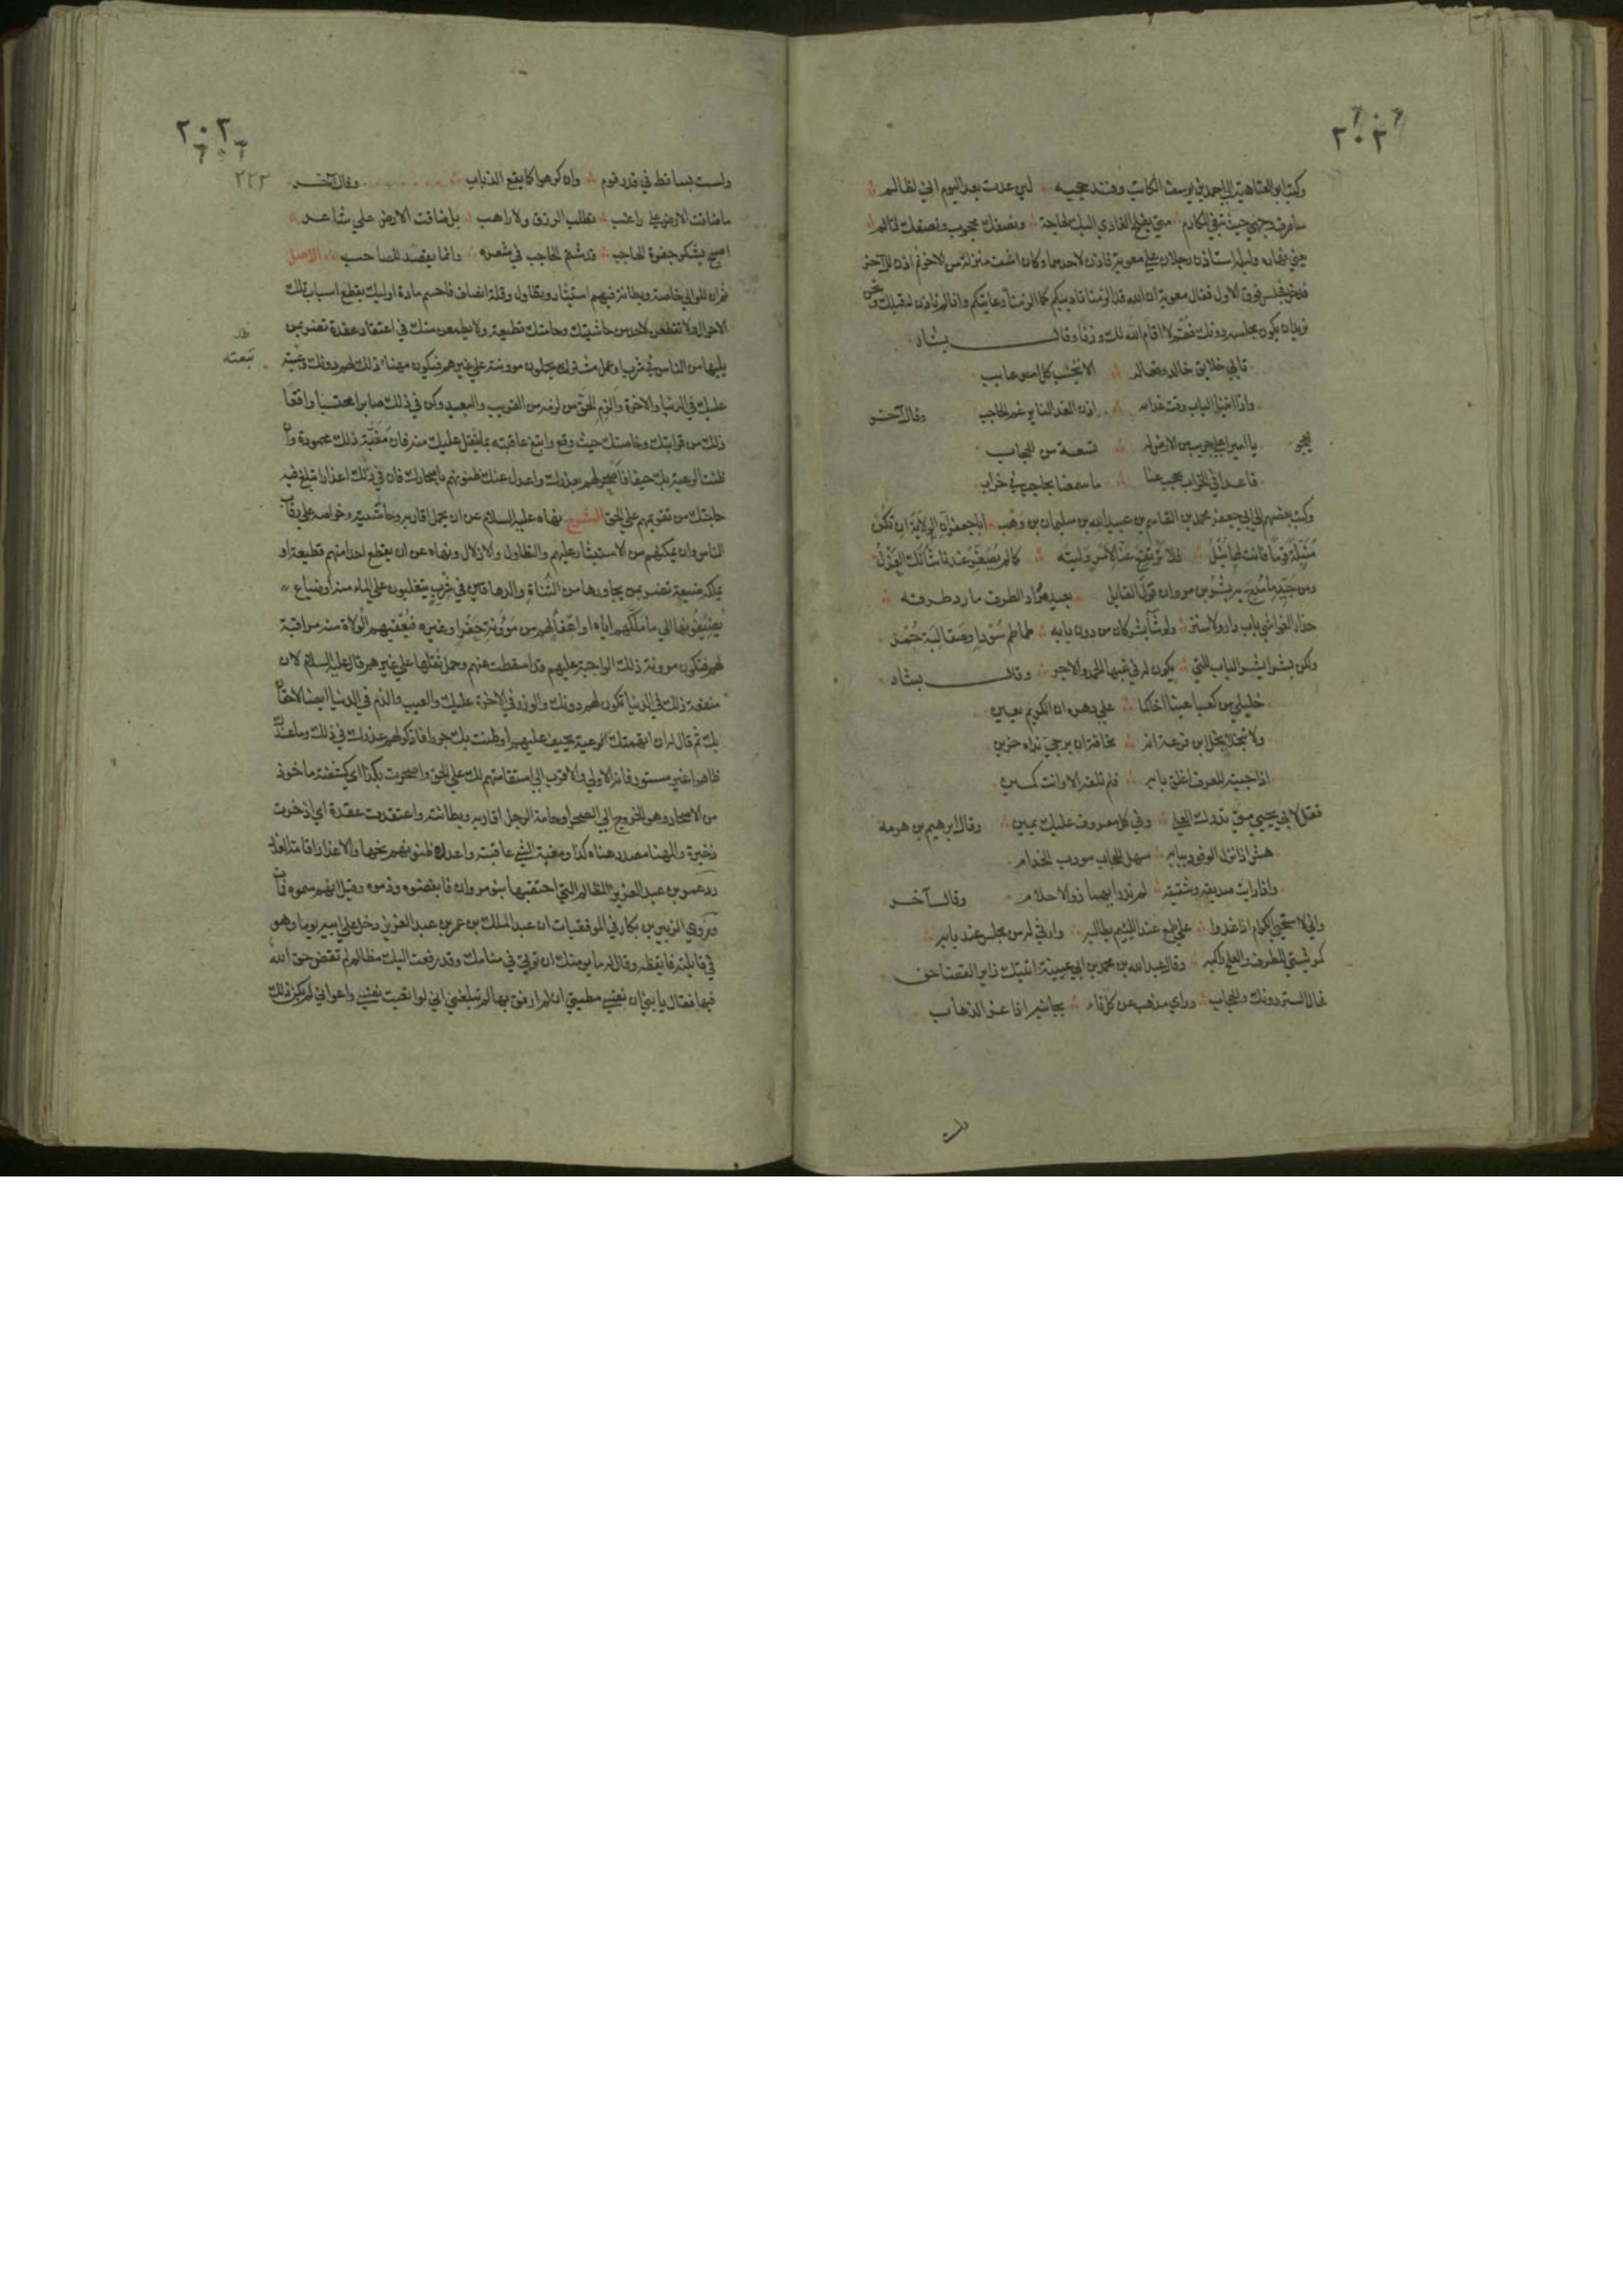 ٢٠٢
وكتب ابو العتاهية الى احمد بن يوسف الكاتب وقد حجبه لئن عدت بعد اليوم اني لظالم
ساصرف وجهي حيث تبغى المكارم متى يفلح الغادي اليك لحاجة ونصفك محجوب ونصفك نائم
يعني ليله استاذن رجلان على معوية فاذن لاحدهما وكان اشرف منزلة من الاخر ثم اذن للآخر
فدخل فجلس فوق الاول فقال معوية ان الله قد الزمنا تاديبكم كما الزمنا رعايتكم وانا لم ناذن له قبلك ونحن
نريد ان يكون مجلسه دونك فقم لا اقام الله لك وزنا وقال بشار
تابى خلايق خالد وفعاله الا تجنب كل امر عايب
واذا اتينا الباب وقت غدائه اذن الغداء لنا برغم الحاجب وقال آخر
يهجو يا اميرا على جريب من الارض له تسعة من الحجاب
قاعدا في الخراب يحجب عنا ما سمعنا بحاجب في خراب
وكتب بعضهم الى ابي جعفر محمد بن القاسم بن عبيد الله بن سليمان بن وهب ابا جعفر ان الولاية ان تكن
منبلة قوما فانت لها نبل فلا ترتفع عنا لامر وليته كما لم يصغر عندنا شأنك العزل
ومن جيد ما مدح به بشر بن مروان قول القايل بعيد مراد الطرف ما رد طرفه
حذار الغواشي باب دار ولا ستر ولو شآ بشر كان من دون بابه طماطم سود او صقالبة حمر
ولكن بشرا يسر الباب للتي يكون له في غبها الحمد والاجر وقال بشار
خليلي من كعب اعينا اخاكما على دهره ان الكريم معين
ولا تبخلا بخل ابن قزعة انه مخافة ان يرجى نداه حزين
اذا جئته للعرف اغلق بابه فلم تلقه الا وانت كمين
فقل لابي يحيى متى تدرك العلى وفي كل معروف عليك يمين وقال ابرهيم بن هرمة
هش اذا نزل الوفود ببابه سهل الحجاب مودب الخدام
واذا رايت صديقه وشقيقه لم تدر ايهما ذو الارحام وقال آخر
واني لاستحيي الكريم اذا غدا على طمع عند اللئيم يطالبه وارثي له من مجلس عند بابه
كمرثيتي للطرف والعلج راكبه وقال عبد الله بن محمد بن ابي عيينة اتيتك زايرا لقضا حق
فحال الستر دونك والحجاب وراي مذهب عن كل ناء بجانبه اذا عز الذهاب
ولست
٢٠٣
٢٢٣
ولست بساقط في قدر قوم وان كرهوا كما يقع الذباب وقال آخر
ما ضاقت الارض على راغب تطلب الرزق ولا راهب بل ضاقت الارض على شاعر
اصبح يشكو جفوة الحاجب قد شتم الحاجب في شعره وانما يقصد للصاحب الاصل
ثم ان للوالي خاصة وبطانة فيهم استيثار وتطاول وقلة انصاف فاحسم مادة اوليك بقطع اسباب تلك
الاحوال ولا تقطعن لاحد من حاشيتك وحامتك قطيعة ولا يطمعن منك في اعتقاد عقدة تضر بمن
يليها من الناس في شرب او عمل مشترك يحملون موونته على غيرهم فيكون مهنا ذلك لهم دونك وعيبه
عليك في الدنيا والاخرة والزم الحق من لزمه من القريب والبعيد وكن في ذلك صابرا محتسبا واقعا
ذلك من قرابتك وخاصتك حيث وقع وابتغ عاقبته بما يثقل عليك منه فان مغبة ذلك محمودة وان
ظنت الرعية بك حيفا فاصحر لهم بعذرك واعدل عنك ظنونهم باصحارك فان في ذلك اعذارا تبلغ فيه
حاجتك من تقويمهم على الحق الشرح نهاه عليه السلام عن ان يحمل اقاربه وحاشيته وخواصه على رقاب
الناس وان يمكنهم من الاستيثار عليهم والتطاول والاذلال ونهاه عن ان يقطع احدا منهم قطيعة او
يملكه ضيعة تضر بمن يجاورها من التناة والدهاقين في شرب يتغلبون على الماء منه او ضياع
يضيفونها الى ما ملكهم اياه او اعفا لهم من موونة حفر او غيره فيعفيهم الولاة منه مراقبة
لهم فيكون موونة ذلك الواجبة عليهم قد اسقطت عنهم وحمل ثقلها على غيرهم قال عليه السلام لان
منفعة ذلك في الدنيا تكون لهم دونك والوزر في الاخرة عليك والعيب والذم في الدنيا ايضا لاحقان
بك ثم قال له ان اتهمتك الرعية بحيف عليهم او ظنت بك جورا فاذكر لهم عذرك في ذلك وما عندك
ظاهرا غير مستور فانه الاولى والاقرب الى استقامتهم لك على الحق واصحرت بكذا اي كشفته ماخوذ
من الاصحار وهو الخروج الى الصحرا وحامة الرجل اقاربه وبطانته واعتقدت عقدة اي اذخرت
ذخيرة والمهنا مصدر هناه كذا ومغبة الشي عاقبته واعدل ظنونهم نحها والاعذار اقامة العذر
رد عمر بن عبد العزيز المظالم التي احتقبها بنو مروان فابغضوه وذموه وقيل انهم سموه فمات
وروى الزبير بن بكار في الموفقيات ان عبد الملك بن عمر بن عبد العزيز دخل على ابيه يوما وهو
في قايلته فايقظه وقال له ما يومنك ان توتى في منامك وقد رفعت اليك مظالم لم تقض حق الله
فيها فقال يا بني ان نفسي مطيتي ان لم ارفق بها لم تبلغني اني لو اتعبت نفسي واعواني لم يكن ذلك